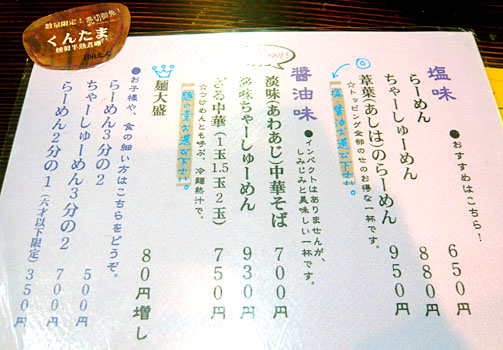 塩味
●おすすめはこちら!
らーめん 650円
ちゃーしゅーめん 880円
葦葉(あしは)のらーめん 950円
☆トッピング全部のせのお得な一杯です。
醤油味
●インパクトはありませんが、
しみじみと美味しい一杯です。
淡味(あわあじ)中華そば 700円
淡味ちゃーしゅーめん 930円
ざる中華(1玉1.5玉2玉) 750円
☆つけめんとも呼ぶ、冷麺熱汁で。
麺の量お選び下さい。
麺大盛 80円増し
●お子様や、食の細い方はこちらをどうぞ。
らーめん3分の2 500円
ちゃーしゅーめん3分の2 700円
らーめん2分の1(六才以下限定) 350円
数量限定!売切御免!
くんたま
燻製半熟煮卵
100えん